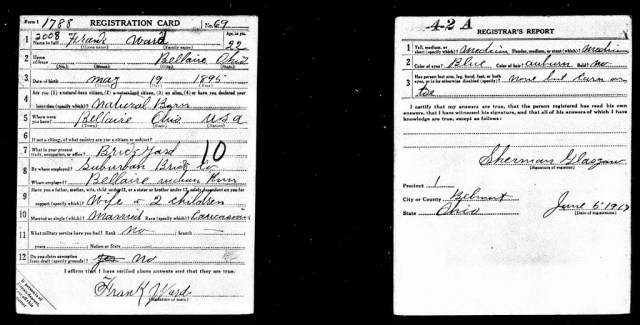 Form 1 1788 REGISTRATION CARD No. 69
1 2008 Frank Ward Age, in yrs. 22
Name in full (Given name) (Family name)
2 Home address Bellaire Ohio
(No.) (Street) (City) (State)
3 Date of birth May 19 1895
(Month) (Day) (Year)
4 Are you (1) a natural-born citizen, (2) a naturalized citizen, (3) an alien, (4) or have you declared your
intention (specify which)? Natural Born
5 Where were you born? Bellaire Ohio USA
(Town) (State) (Nation)
6 If not a citizen, of what country are you a citizen or subject?
7 What is your present trade, occupation, or office? Brick Yard 10
8 By whom employed? Suburban Brick Co
Where employed? Bellaire
9 Have you a father, mother, wife, child under 12, or a sister or brother under 12, solely dependent on you for
support (specify which)? Wife & 2 children
10 Married or single (which)? Married Race (specify which)? Caucasian
11 What military service have you had? Rank No branch
years Nation or State
12 Do you claim exemption from draft (specify grounds)? No
I affirm that I have verified above answers and that they are true.
Frank Ward
(Signature or mark)
4-2 A
REGISTRAR'S REPORT
1 Tall, medium, or short (specify which)? Medium Slender, medium, or stout (which)? Medium
2 Color of eyes? Blue Color of hair? auburn Bald? No
3 Has person lost arm, leg, hand, foot, or both
eyes, or is he otherwise disabled (specify)? none but burn on
toe
I certify that my answers are true, that the person registered has read his own
answers, that I have witnessed his signature, and that all of his answers of which I have
knowledge are true, except as follows:
Sherman Glasgow
(Signature of registrar)
Precinct 1
City or County Belmont
State Ohio
June 5 1917
(Date of registration)